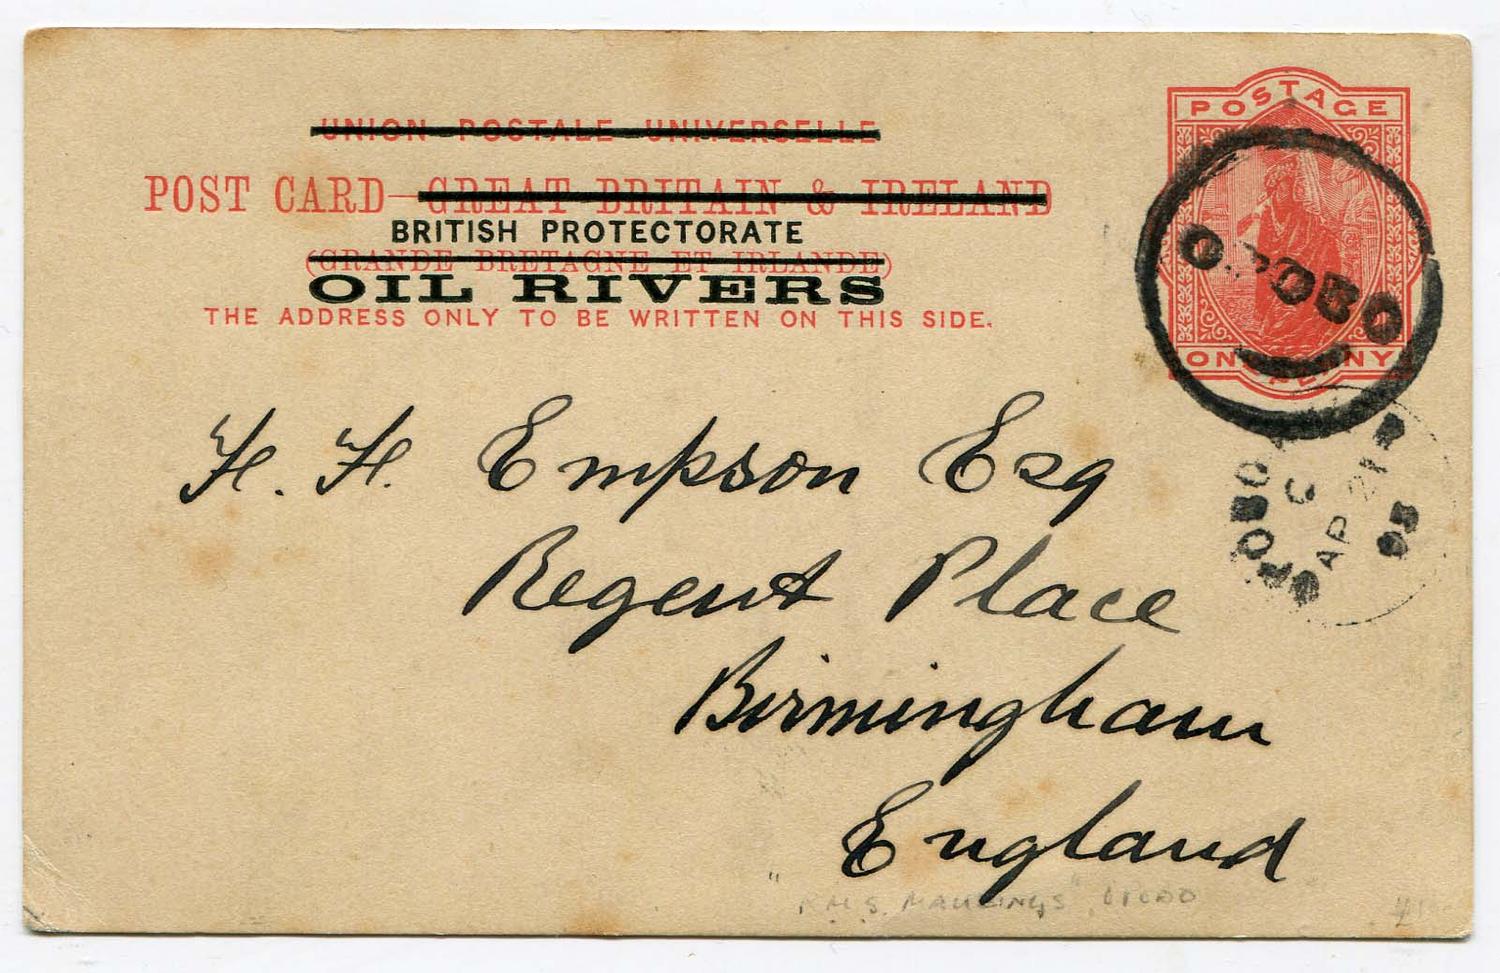 POSTAGE
UNION POSTALE UNIVERSELLE
POST CARD—GREAT BRITAIN & IRELAND
BRITISH PROTECTORATE
(GRANDE BRETAGNE ET IRLANDE)
OIL RIVERS
THE ADDRESS ONLY TO BE WRITTEN ON THIS SIDE.
OPOBO
ONE PENNY
H. H. Empson Esq
Regent Place
Birmingham
England
C
AP 21
93
OPOBO